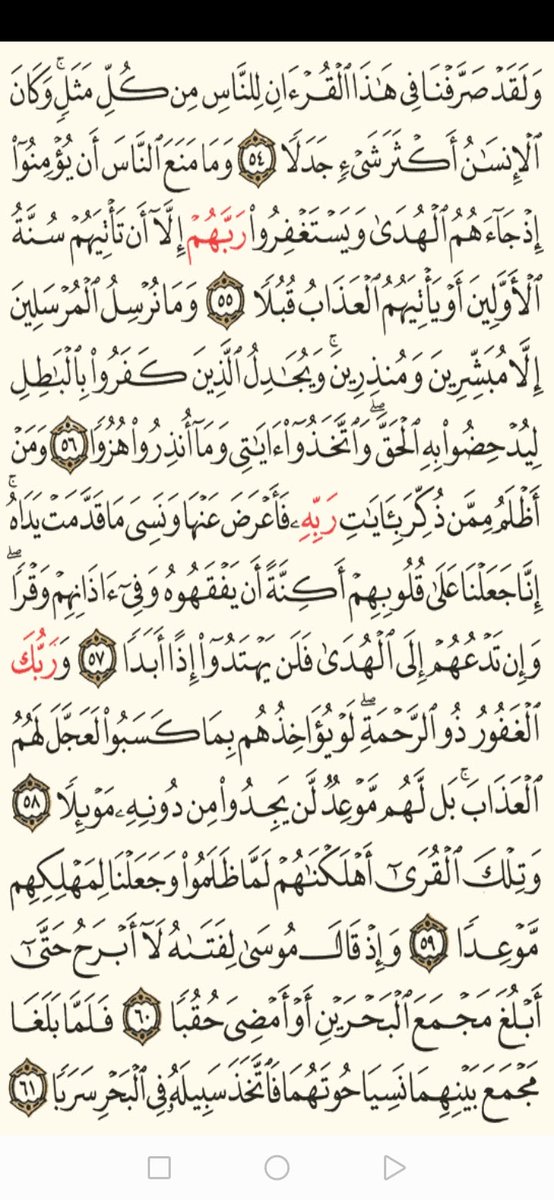 وَلَقَدۡ صَرَّفۡنَا فِي هَٰذَا ٱلۡقُرۡءَانِ لِلنَّاسِ مِن كُلِّ مَثَلٖۚ وَكَانَ
ٱلۡإِنسَٰنُ أَكۡثَرَ شَيۡءٖ جَدَلٗا ٥٤ وَمَا مَنَعَ ٱلنَّاسَ أَن يُؤۡمِنُوٓاْ
إِذۡ جَآءَهُمُ ٱلۡهُدَىٰ وَيَسۡتَغۡفِرُواْ رَبَّهُمۡ إِلَّآ أَن تَأۡتِيَهُمۡ سُنَّةُ
ٱلۡأَوَّلِينَ أَوۡ يَأۡتِيَهُمُ ٱلۡعَذَابُ قُبُلٗا ٥٥ وَمَا نُرۡسِلُ ٱلۡمُرۡسَلِينَ
إِلَّا مُبَشِّرِينَ وَمُنذِرِينَۚ وَيُجَٰدِلُ ٱلَّذِينَ كَفَرُواْ بِٱلۡبَٰطِلِ
لِيُدۡحِضُواْ بِهِ ٱلۡحَقَّۖ وَٱتَّخَذُوٓاْ ءَايَٰتِي وَمَآ أُنذِرُواْ هُزُوٗا ٥٦ وَمَنۡ
أَظۡلَمُ مِمَّن ذُكِّرَ بِـَٔايَٰتِ رَبِّهِۦ فَأَعۡرَضَ عَنۡهَا وَنَسِيَ مَا قَدَّمَتۡ يَدَاهُۚ
إِنَّا جَعَلۡنَا عَلَىٰ قُلُوبِهِمۡ أَكِنَّةً أَن يَفۡقَهُوهُ وَفِيٓ ءَاذَانِهِمۡ وَقۡرٗاۖ
وَإِن تَدۡعُهُمۡ إِلَى ٱلۡهُدَىٰ فَلَن يَهۡتَدُوٓاْ إِذًا أَبَدٗا ٥٧ وَرَبُّكَ
ٱلۡغَفُورُ ذُو ٱلرَّحۡمَةِۖ لَوۡ يُؤَاخِذُهُم بِمَا كَسَبُواْ لَعَجَّلَ لَهُمُ
ٱلۡعَذَابَۚ بَل لَّهُم مَّوۡعِدٞ لَّن يَجِدُواْ مِن دُونِهِۦ مَوۡئِلٗا ٥٨
وَتِلۡكَ ٱلۡقُرَىٰٓ أَهۡلَكۡنَٰهُمۡ لَمَّا ظَلَمُواْ وَجَعَلۡنَا لِمَهۡلِكِهِم
مَّوۡعِدٗا ٥٩ وَإِذۡ قَالَ مُوسَىٰ لِفَتَىٰهُ لَآ أَبۡرَحُ حَتَّىٰٓ
أَبۡلُغَ مَجۡمَعَ ٱلۡبَحۡرَيۡنِ أَوۡ أَمۡضِيَ حُقُبٗا ٦٠ فَلَمَّا بَلَغَا
مَجۡمَعَ بَيۡنِهِمَا نَسِيَا حُوتَهُمَا فَٱتَّخَذَ سَبِيلَهُۥ فِي ٱلۡبَحۡرِ سَرَبٗا ٦١